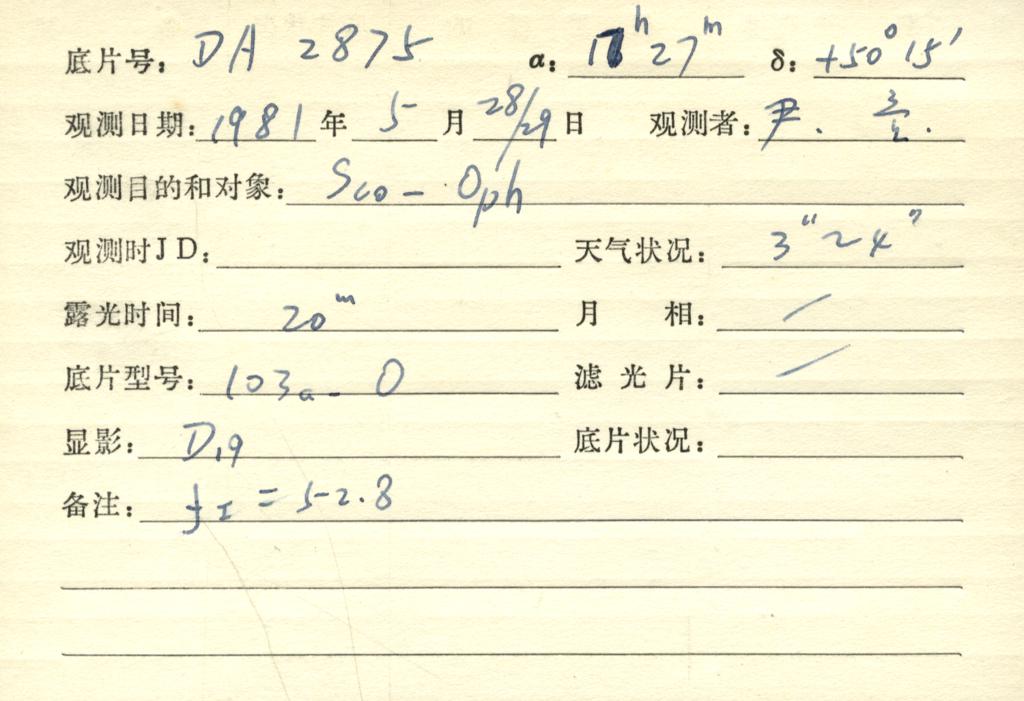 底片号: DA 2875 α: 17ʰ 27ᵐ δ: +50° 15′
观测日期: 1981 年 5 月 28/29 日 观测者: 尹.
观测目的和对象: Sco - Oph
观测时JD: 天气状况: 3" ~ 4"
露光时间: 20ᵐ 月 相: /
底片型号: 103a-O 滤光片: /
显影: D19 底片状况:
备注: = 52.8